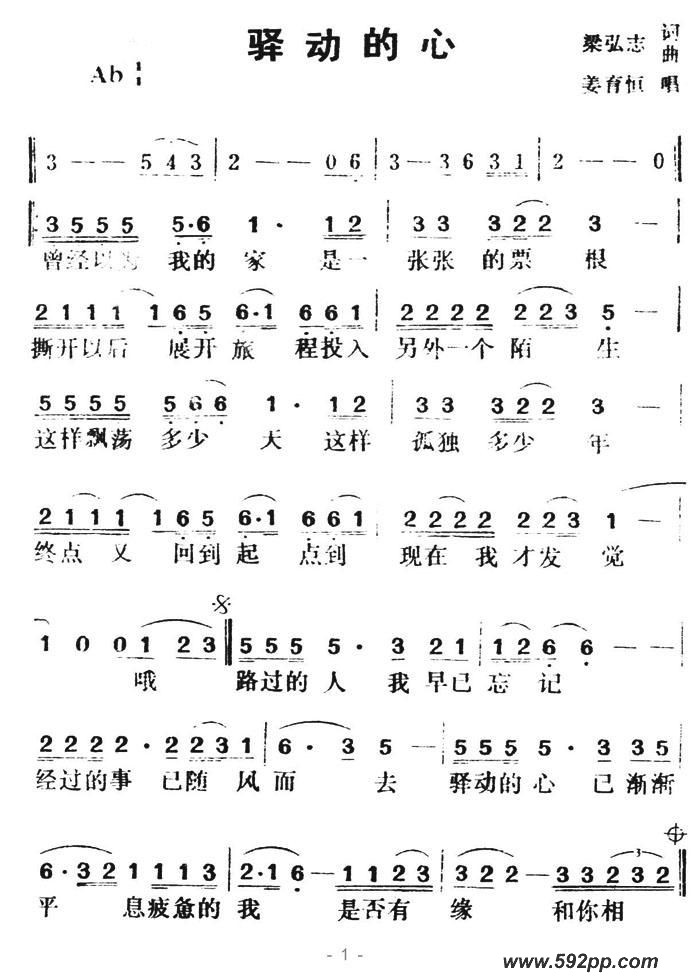 驿动的心
梁弘志 词
曲
Ab
姜育恒 唱
3 — — 5 4 3 | 2 — — 0 6 | 3 — 3 6 3 1 | 2 — — 0
3 5 5 5 5·6 1· 1 2 | 3 3 3 2 2 3 — —
曾经以为 我的 家 是一 张张 的票 根
2 1 1 1 1 1 6 5 6·1 6 6 1 | 2 2 2 2 2 2 3 5 —
撕开以后 展开旅 程投入 另外一个陌 生
5 5 5 5 5 6 6 1· 1 2 | 3 3 3 2 2 3 —
这样飘荡 多少 天 这样 孤独 多少 年
2 1 1 1 1 1 6 5 6·1 6 6 1 | 2 2 2 2 2 2 3 1 —
终点 又 回到 起 点到 现在 我 才发 觉
1 0 0 1 2 3 | 5 5 5 5· 3 2 1 | 1 2 6 6 — —
哦 路过的 人 我 早已 忘记
2 2 2 2· 2 2 3 1 | 6· 3 5 — | 5 5 5 5· 3 3 5
经过的事 已随 风而 去 驿动的 心 已渐渐
6·3 2 1 1 1 1 3 | 2·1 6 — 1 1 2 3 | 3 2 2 — 3 3 2 3 2
平 息疲惫的 我 是否有 缘 和你相
- 1 -
www.592pp.com